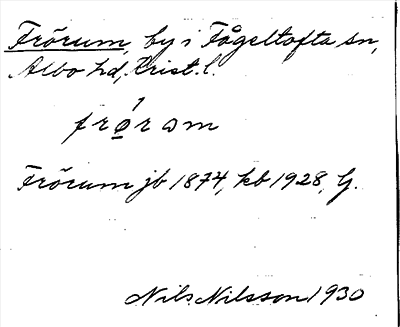 Frörum, by i Fågeltofta sn,
Albo hd, Krist. l.
frǿ̱rəm
Frörum jb 1874, kb 1928, G.
Nils Nilsson 1930